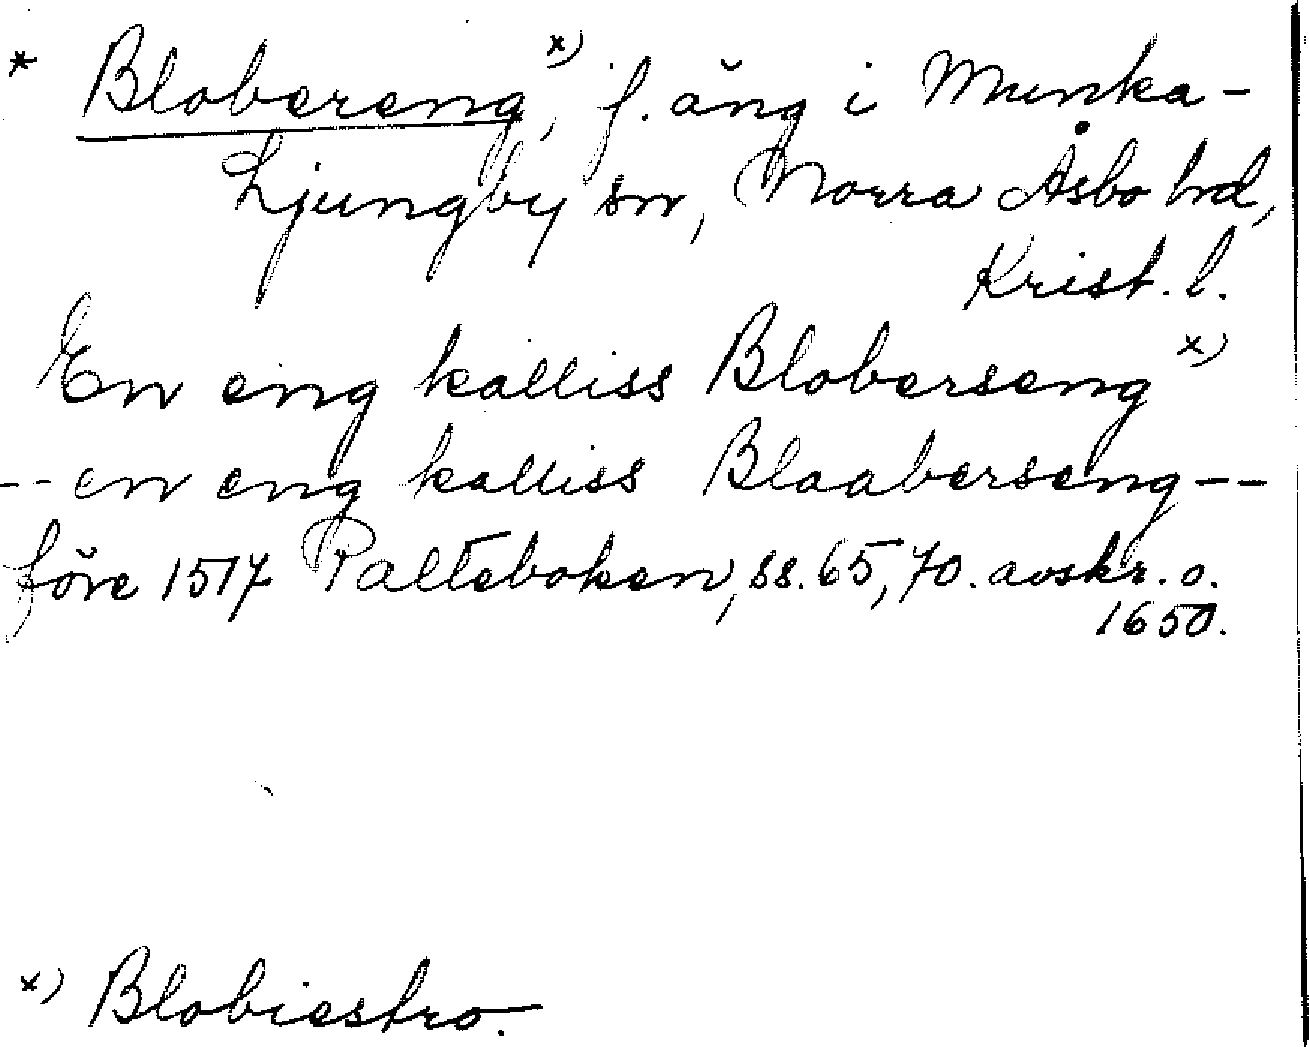 * Blobereng x), f. äng i Munka-
Ljungby sn, Norra Åsbo hd,
Krist. l.
En eng kalliss Bloberseng x)
-- en eng kalliss Blaaberseng --
före 1517 Palteboken, ss. 65, 70. avskr. o.
1650.
x) Blobiestro.